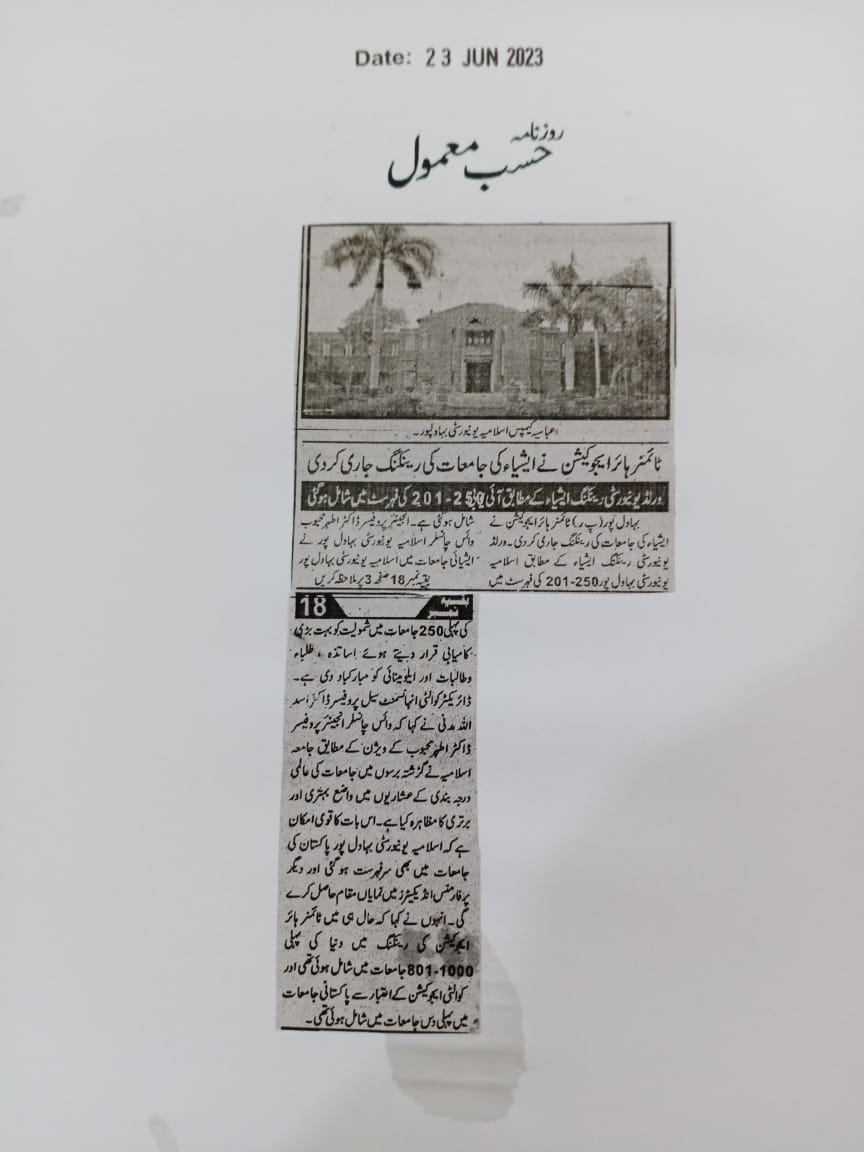 Date: 23 JUN 2023
روزنامہ
حسب معمول
عباسیہ کیمپس اسلامیہ یونیورسٹی بہاولپور۔
ٹائمنر ہائر ایجوکیشن نے ایشیاء کی جامعات کی رینکنگ جاری کردی
ورلڈ یونیورسٹی رینکنگ ایشیاء کے مطابق آئی یو بی 201-250 کی فہرست میں شامل ہوگئی
بہاول پور (پ ر) ٹائمنر ہائر ایجوکیشن نے
ایشیاء کی جامعات کی رینکنگ جاری کردی۔ ورلڈ
یونیورسٹی رینکنگ ایشیاء کے مطابق اسلامیہ
یونیورسٹی بہاول پور 201-250 کی فہرست میں
شامل ہوگئی ہے۔ انجینئر پروفیسر ڈاکٹر اطہر محبوب
وائس چانسلر اسلامیہ یونیورسٹی بہاول پور نے
ایشیائی جامعات میں اسلامیہ یونیورسٹی بہاول پور
بقیہ نمبر 18 صفحہ 3 پر ملاحظہ کریں
بقیہ نمبر 18
کی پہلی 250 جامعات میں شمولیت کو بہت بڑی
کامیابی قرار دیتے ہوئے اساتذہ، طلباء
وطالبات اور ایلومینائی کو مبارکباد دی ہے۔
ڈائریکٹر کوالٹی انہانسمنٹ سیل پروفیسر ڈاکٹر اسد
اللہ مدنی نے کہا کہ وائس چانسلر انجینئر پروفیسر
ڈاکٹر اطہر محبوب کے ویژن کے مطابق جامعہ
اسلامیہ نے گزشتہ برسوں میں جامعات کی عالمی
درجہ بندی کے عشاریوں میں واضع بہتری اور
برتری کا مظاہرہ کیا ہے۔ اس بات کا قومی امکان
ہے کہ اسلامیہ یونیورسٹی بہاول پور پاکستان کی
جامعات میں بھی سرفہرست ہوگئی اور دیگر
پرفارمنس انڈیکیٹرز میں نمایاں مقام حاصل کرے
گی۔ انہوں نے کہا کہ حال ہی میں ٹائمنر ہائر
ایجوکیشن کی رینکنگ میں دنیا کی پہلی
801-1000 جامعات میں شامل ہوئی تھی اور
کوالٹی ایجوکیشن کے اعتبار سے پاکستانی جامعات
میں پہلی دس جامعات میں شامل ہوئی تھی۔